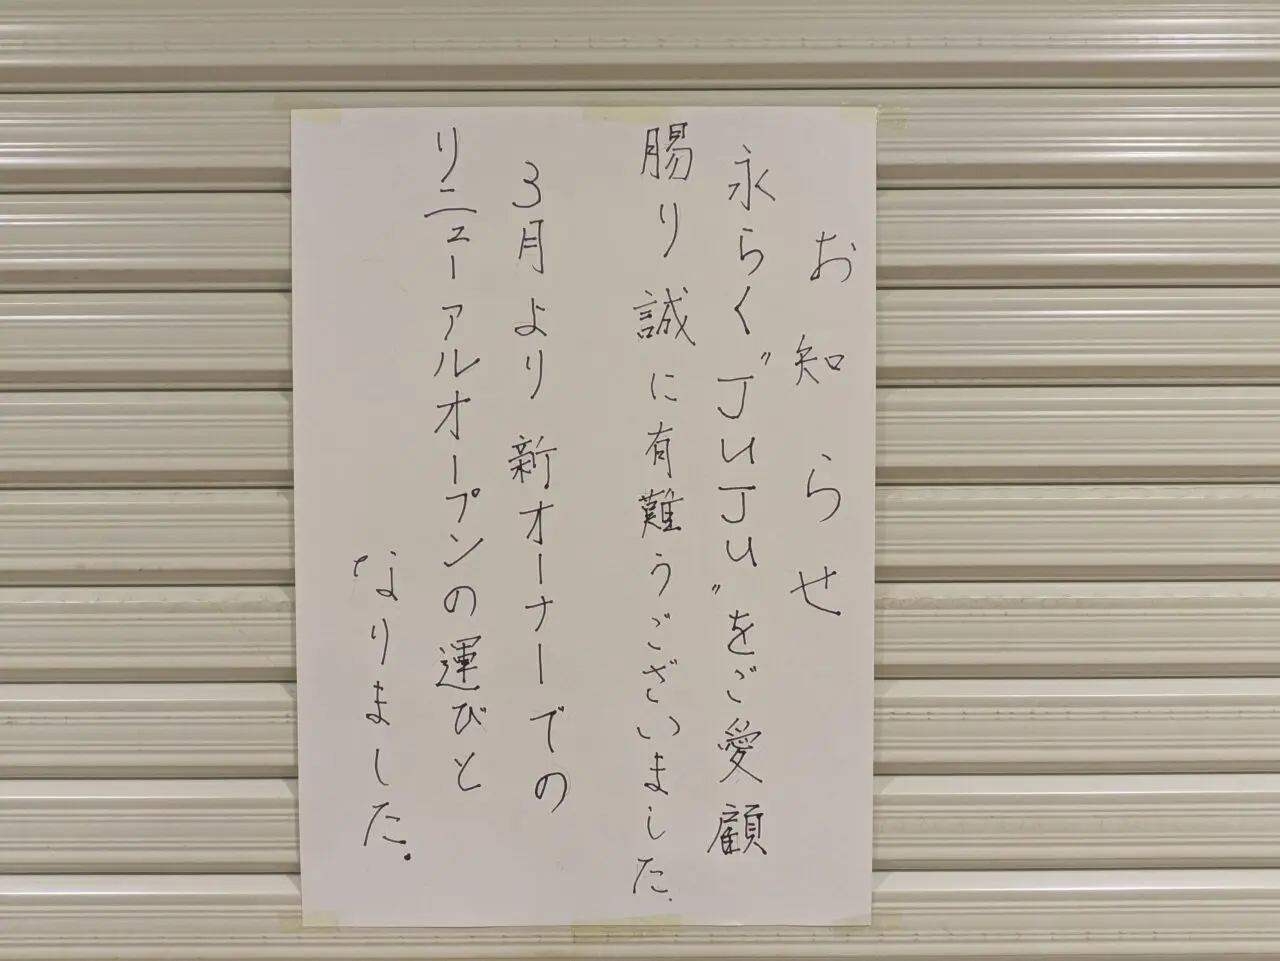 お知らせ
永らく"JuJu"をご愛顧
賜り誠に有難うございました.
3月より新オーナーでの
リニューアルオープンの運びと
なりました。